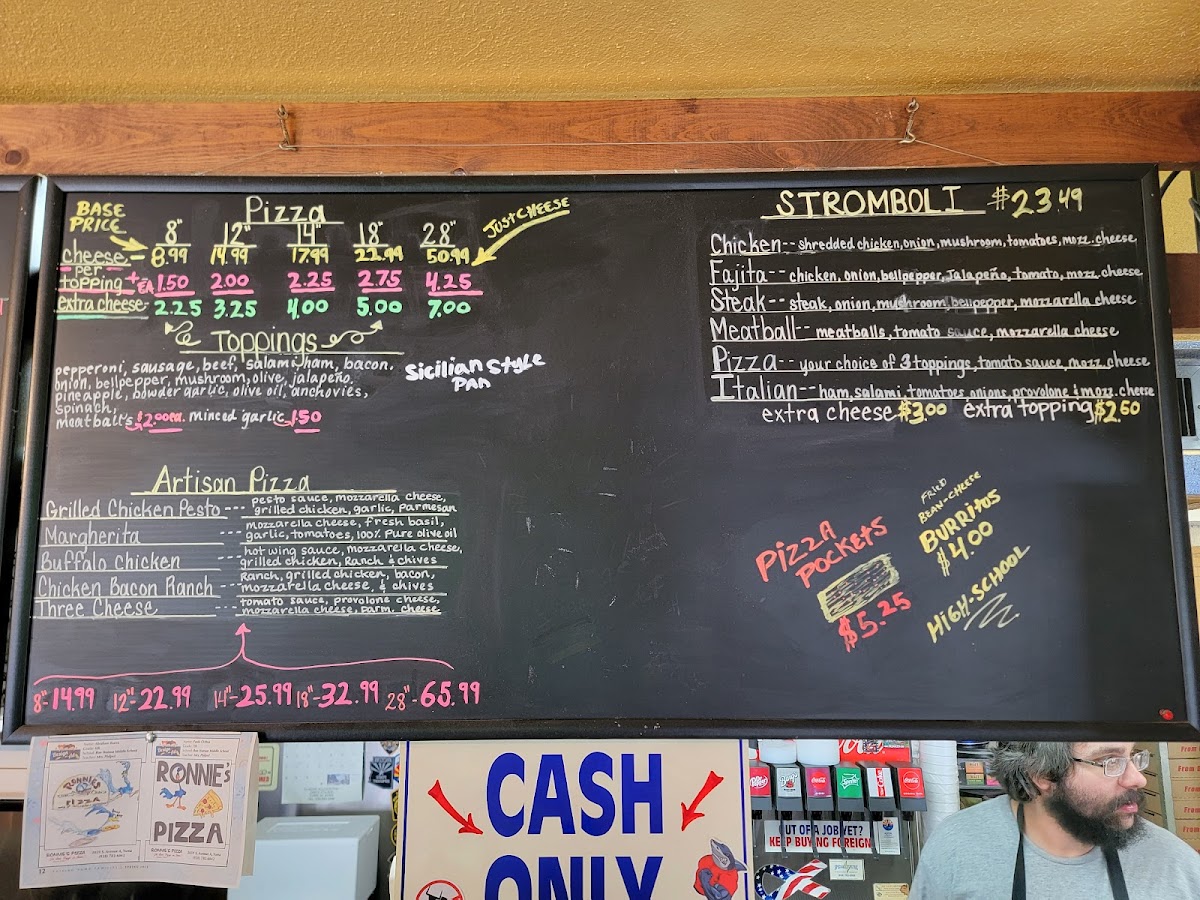 BASE PRICE
Pizza
8" 12" 14" 18" 28"
JUST CHEESE
cheese - 8.99 14.99 17.99 22.99 50.99
per topping + EA 1.50 2.00 2.25 2.75 4.25
extra cheese - 2.25 3.25 4.00 5.00 7.00
Toppings
pepperoni, sausage, beef, salami, ham, bacon.
onion, bellpepper, mushroom, olive, jalapeño.
pineapple, powder garlic, olive oil, anchovies,
spinach,
meatball's $2.00ea. minced garlic 1.50
Sicilian Style
Pan
Artisan Pizza
Grilled Chicken Pesto --- pesto sauce, mozzarella cheese,
grilled chicken, garlic, parmesan
Margherita --- mozzarella cheese, fresh basil,
garlic, tomatoes, 100% Pure olive oil
Buffalo chicken --- hot wing sauce, mozzarella cheese,
grilled chicken, Ranch & chives
Chicken Bacon Ranch --- Ranch, grilled chicken, bacon,
mozzarella cheese, & chives
Three Cheese --- tomato sauce, provolone cheese,
mozzarella cheese, parm. cheese
8"-14.99 12"-22.99 14"-25.99 18"-32.99 28"-65.99
STROMBOLI $23.49
Chicken -- shredded chicken, onion, mushroom, tomatoes, mozz. cheese
Fajita -- chicken, onion, bellpepper, Jalapeño, tomato, mozz. cheese
Steak -- steak, onion, mushroom, bellpepper, mozzarella cheese
Meatball -- meatballs, tomato sauce, mozzarella cheese
Pizza -- your choice of 3 toppings, tomato sauce, mozz. cheese
Italian -- ham, salami, tomatoes, onions, provolone & mozz. cheese
extra cheese $3.00 extra topping $2.50
PIZZA
POCKETS
$5.25
FRIED
BEAN-CHEESE
BURRITOS
$4.00
HIGH-SCHOOL
RONNIE'S
PIZZA
RONNIE'S
PIZZA
CASH
ONLY
OUT OF A JOB YET?
KEEP BUYING FOREIGN